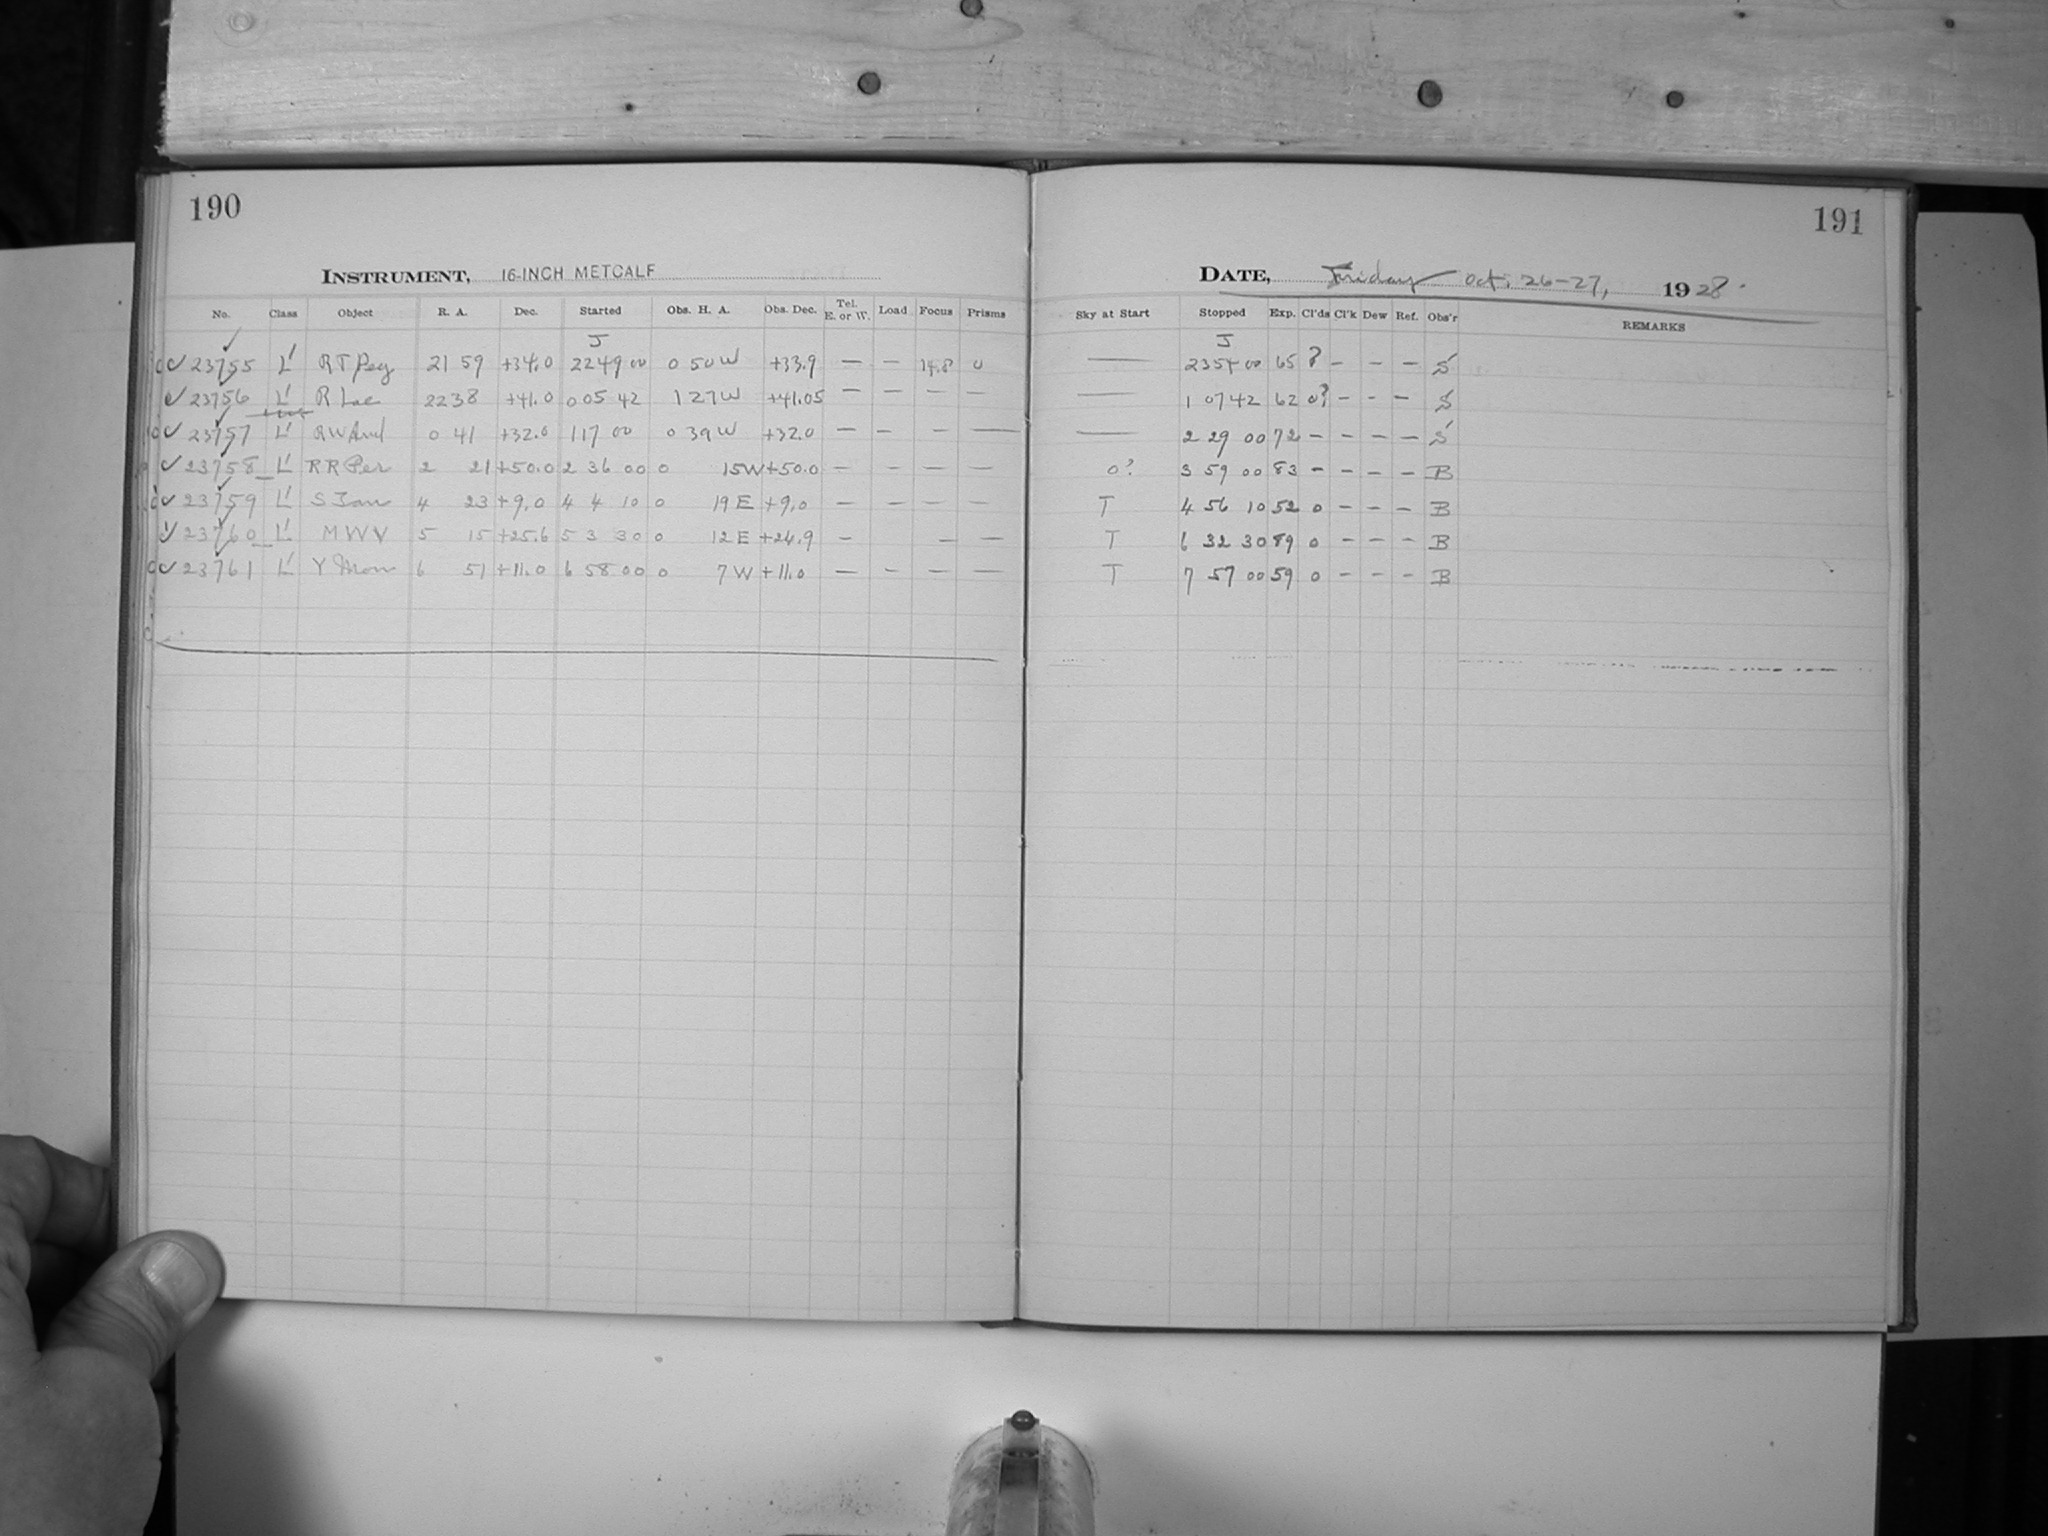 190
INSTRUMENT, 16-INCH METCALF
No. Class Object R. A. Dec. Started Obs. H. A. Obs. Dec. Tel. E. or W. Load Focus Prisms
J
23755 L' RT Peg 21 59 +34.0 22 49 00 0 50 W +33.9 — — 14.8 0
23756 L' R Lac 22 38 +41.0 0 05 42 1 27 W +41.05 — — — —
23757 L' RW And 0 41 +32.0 1 17 00 0 39 W +32.0 — — — —
23758 L' RR Per 2 21 +50.0 2 36 00 0 15 W +50.0 — — — —
23759 L' S Tau 4 23 +9.0 4 4 10 0 19 E +9.0 — — — —
23760 L' MWV 5 15 +25.6 5 3 30 0 12 E +24.9 — — —
23761 L' Y Mon 6 51 +11.0 6 58 00 0 7 W +11.0 — — — —
191
DATE, Friday Oct. 26-27, 1928.
Sky at Start Stopped Exp. Cl'ds Cl'k Dew Ref. Obs'r REMARKS
J
— 23 54 00 65 ? — — — S
— 1 07 42 62 0? — — — S
— 2 29 00 72 — — — — S
0? 3 59 00 83 — — — — B
T 4 56 10 52 0 — — — B
T 6 32 30 89 0 — — — B
T 7 57 00 59 0 — — — B